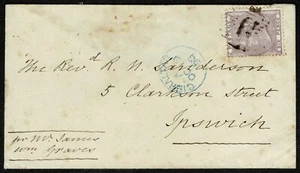 The Revd. R. N. Sanderson
5 Clarkson street
Ipswich
pr Mr. James
Wm Graves